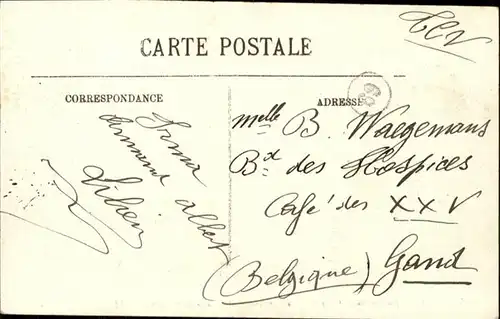 CARTE POSTALE
CORRESPONDANCE
ADRESSE
Melle B. Waegemans
Bd des Hospices
Café des XXV
(Belgique) Gand
Irma
albert